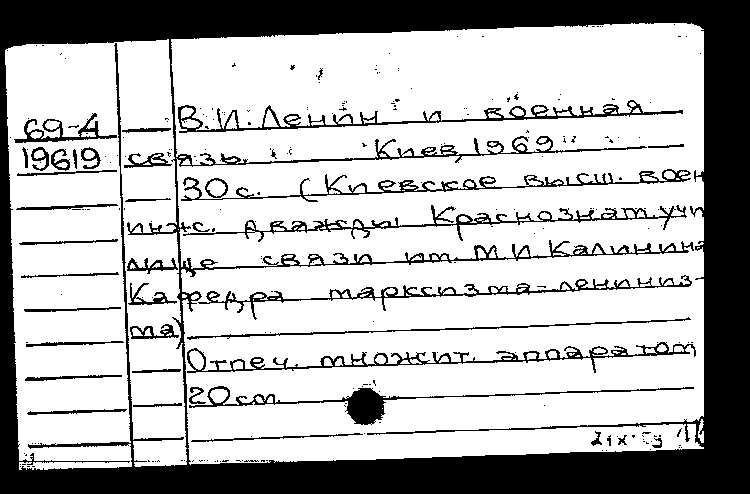 69-4 В.И. Ленин и военная
19619 связь. Киев, 1969
30 с. (Киевское высш. воен
инж. дважды Краснознам. учи
лище связи им. М.И. Калинина
Кафедра марксизма-лениниз-
ма)
Отпеч. множит. аппаратом
20 см.